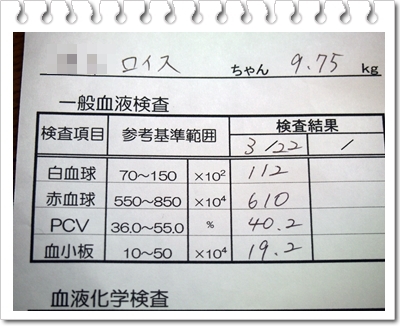 ロイス ちゃん 9.75 kg
一般血液検査
検査項目 参考基準範囲 検査結果
3/22 /
白血球 70～150 ×10² 112
赤血球 550～850 ×10⁴ 610
PCV 36.0～55.0 % 40.2
血小板 10～50 ×10⁴ 19.2
血液化学検査